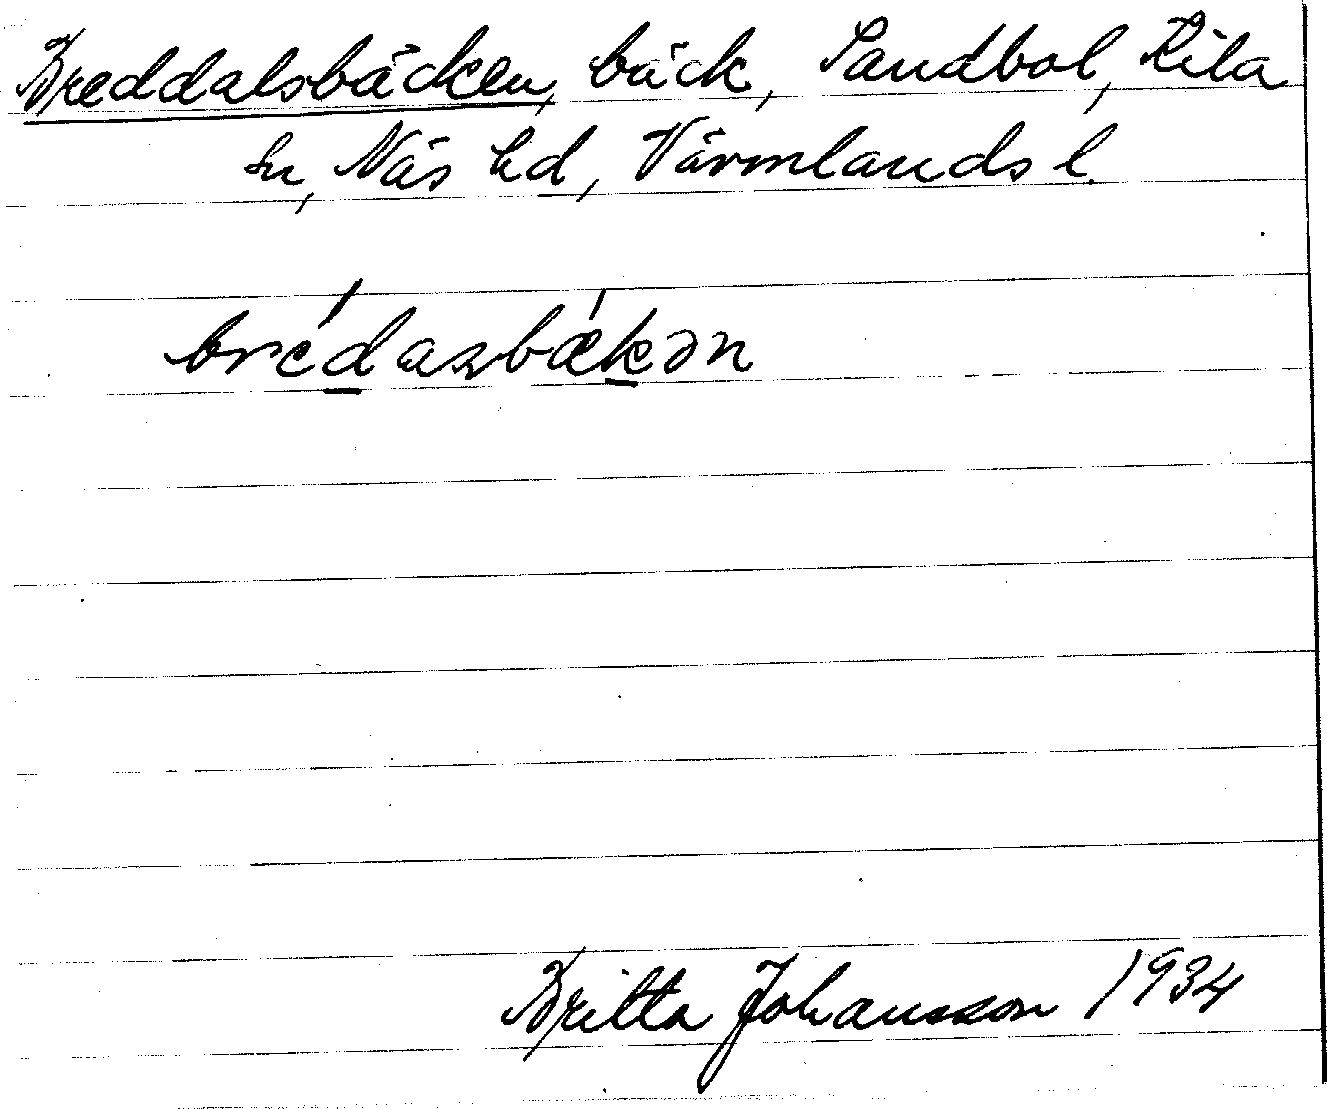 Breddalsbäcken, bäck, Sandbol, Kila
sn, Näs hd, Värmlands l.
bréd̲asbǽk̲ən
Britta Johansson 1934